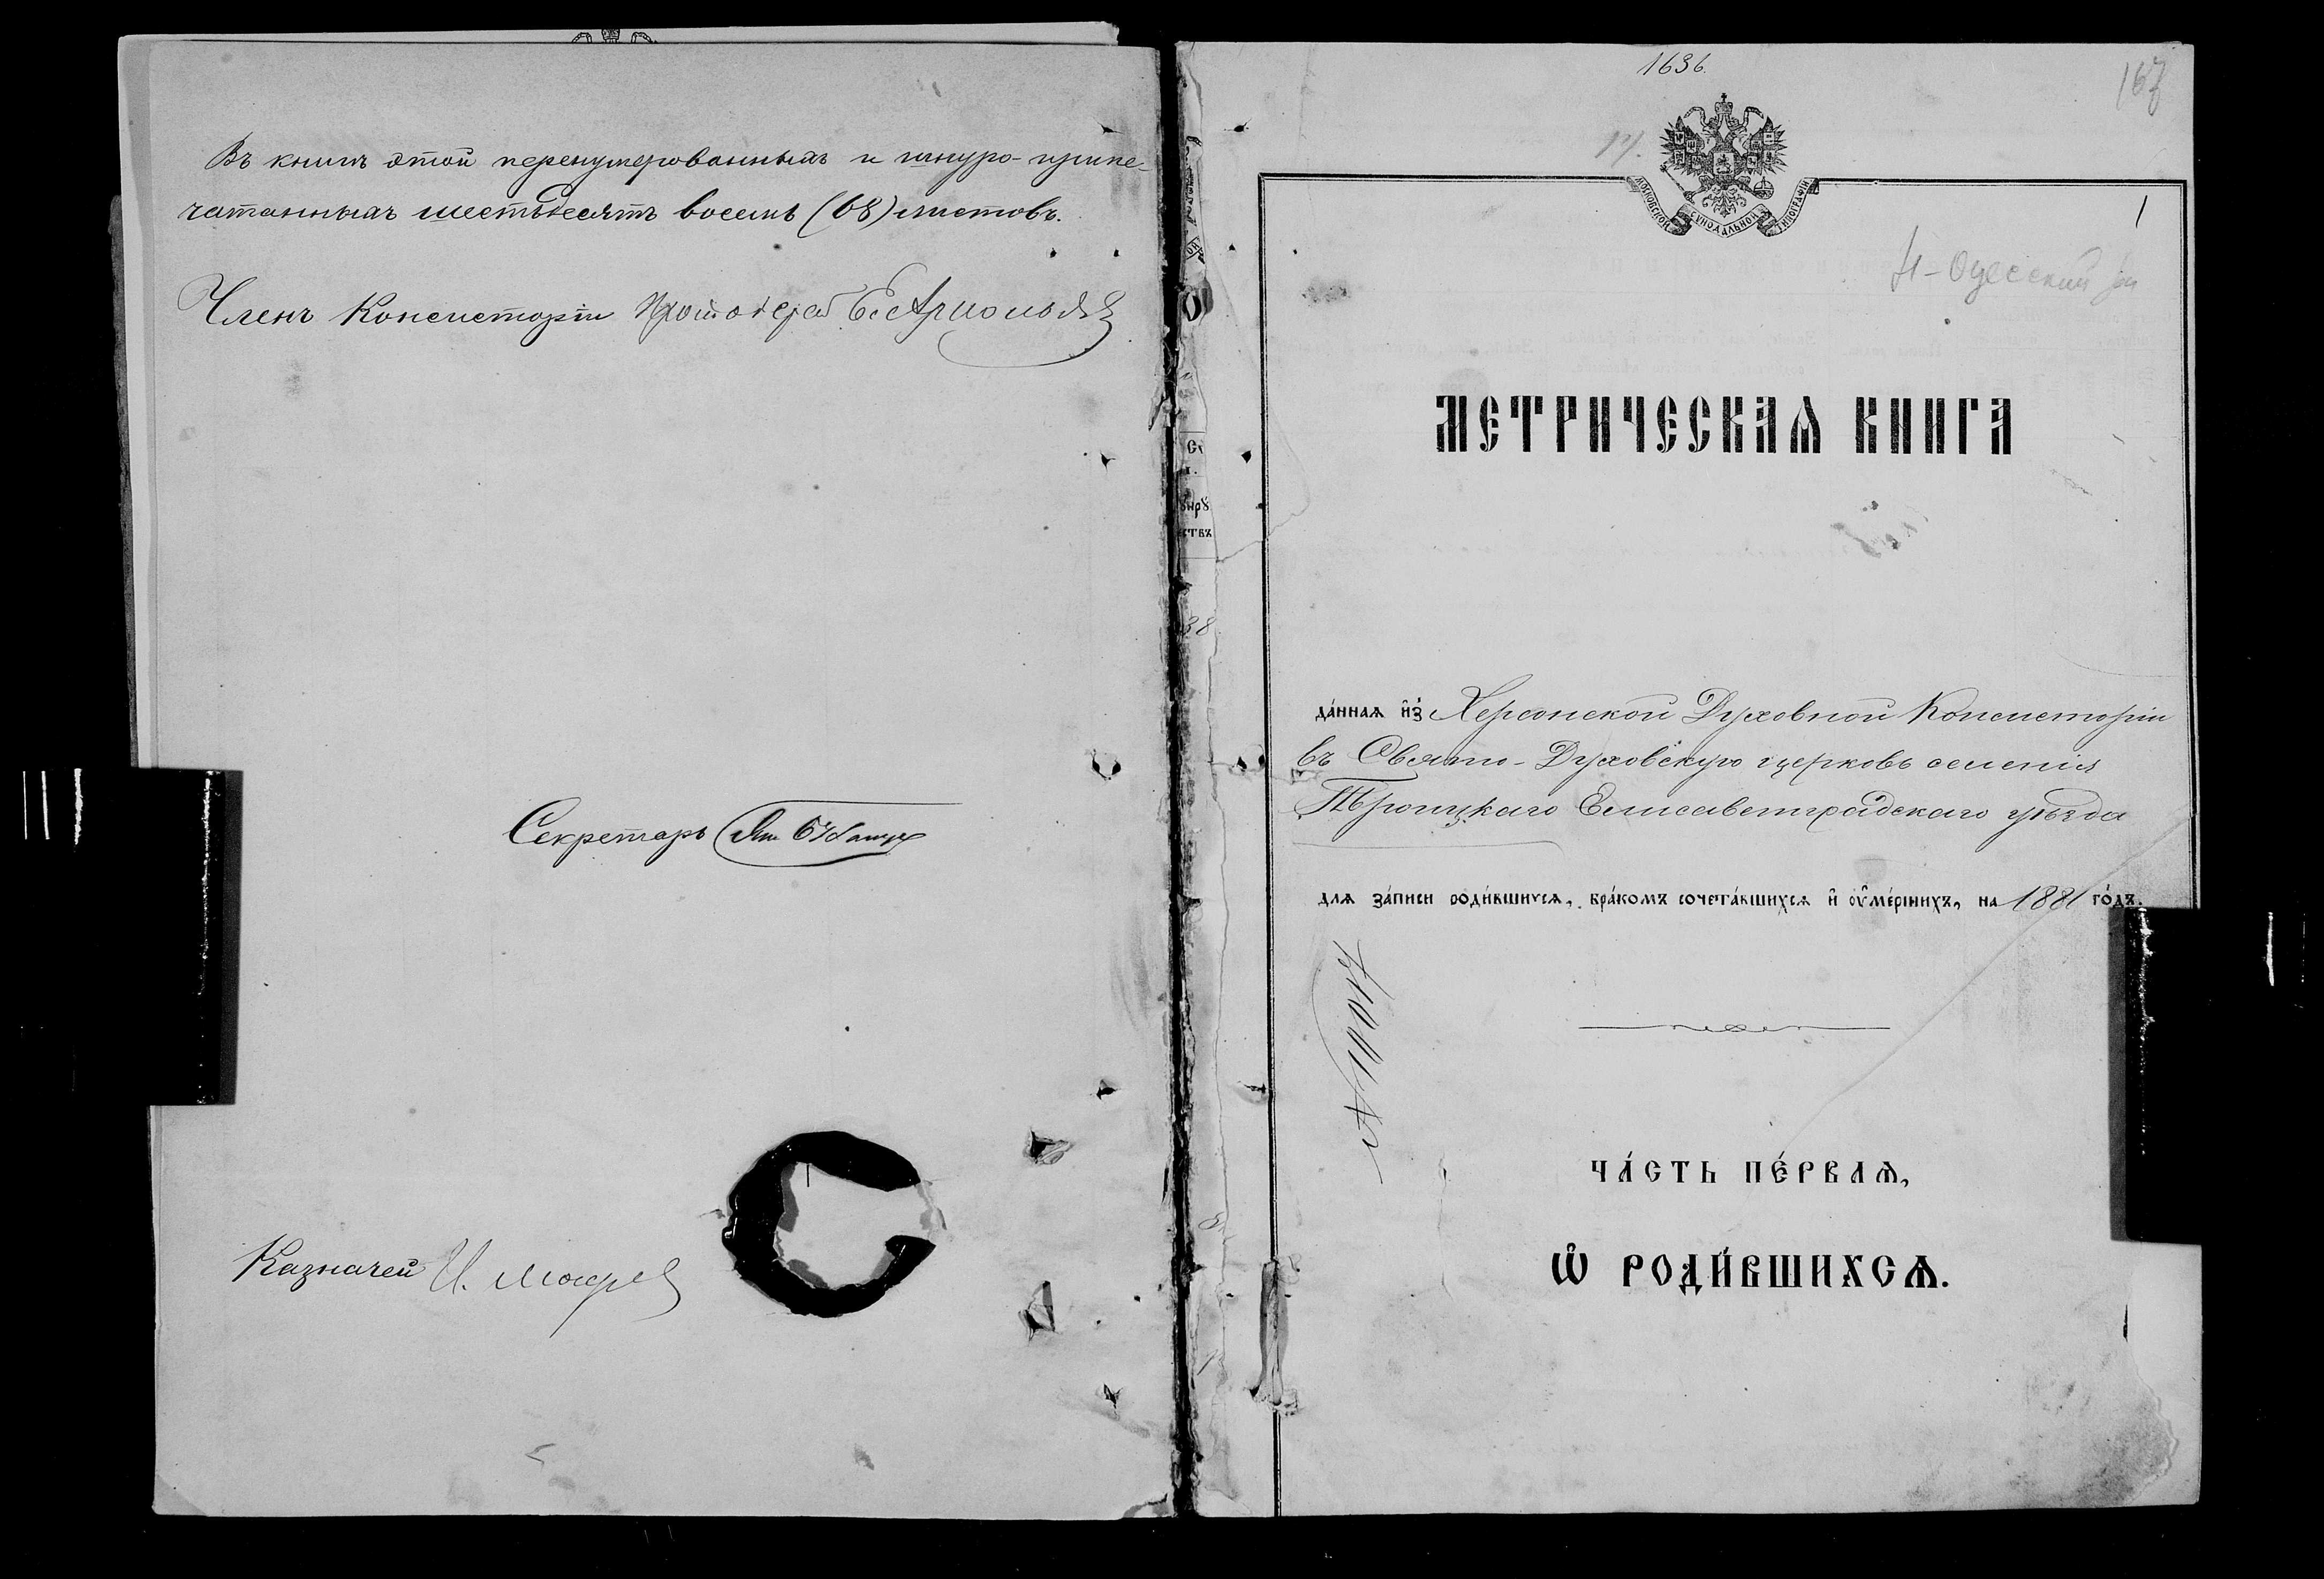 Въ книгѣ этой перенумерованныхъ и шнуро-припе-
чатанныхъ шестьдесятъ восемь (68) листовъ.
Членъ Консисторіи Протоіерей
Секретарь
Казначей И.
1636.
167
МОСКОВСКОЙ СѴНОДАЛЬНОЙ ТИПОГРАФІИ
1
Н-Одесский
МЕТРИЧЕСКАѦ КНИГА
да́ннаѧ и҆з̾ Херсонской Духовной Консисторіи
въ Свято-Духовскую церковь селенія
Троицкаго Елисаветградскаго уѣзда
длѧ за́писи роди́вшихсѧ, бра́комъ сочета́вшихсѧ и҆ ᲂу҆ме́ршихъ, на 1881 го́дъ.
ЧА́СТЬ ПЕ́РВАѦ,
Ѡ҆ РОДИ́ВШИХСѦ.